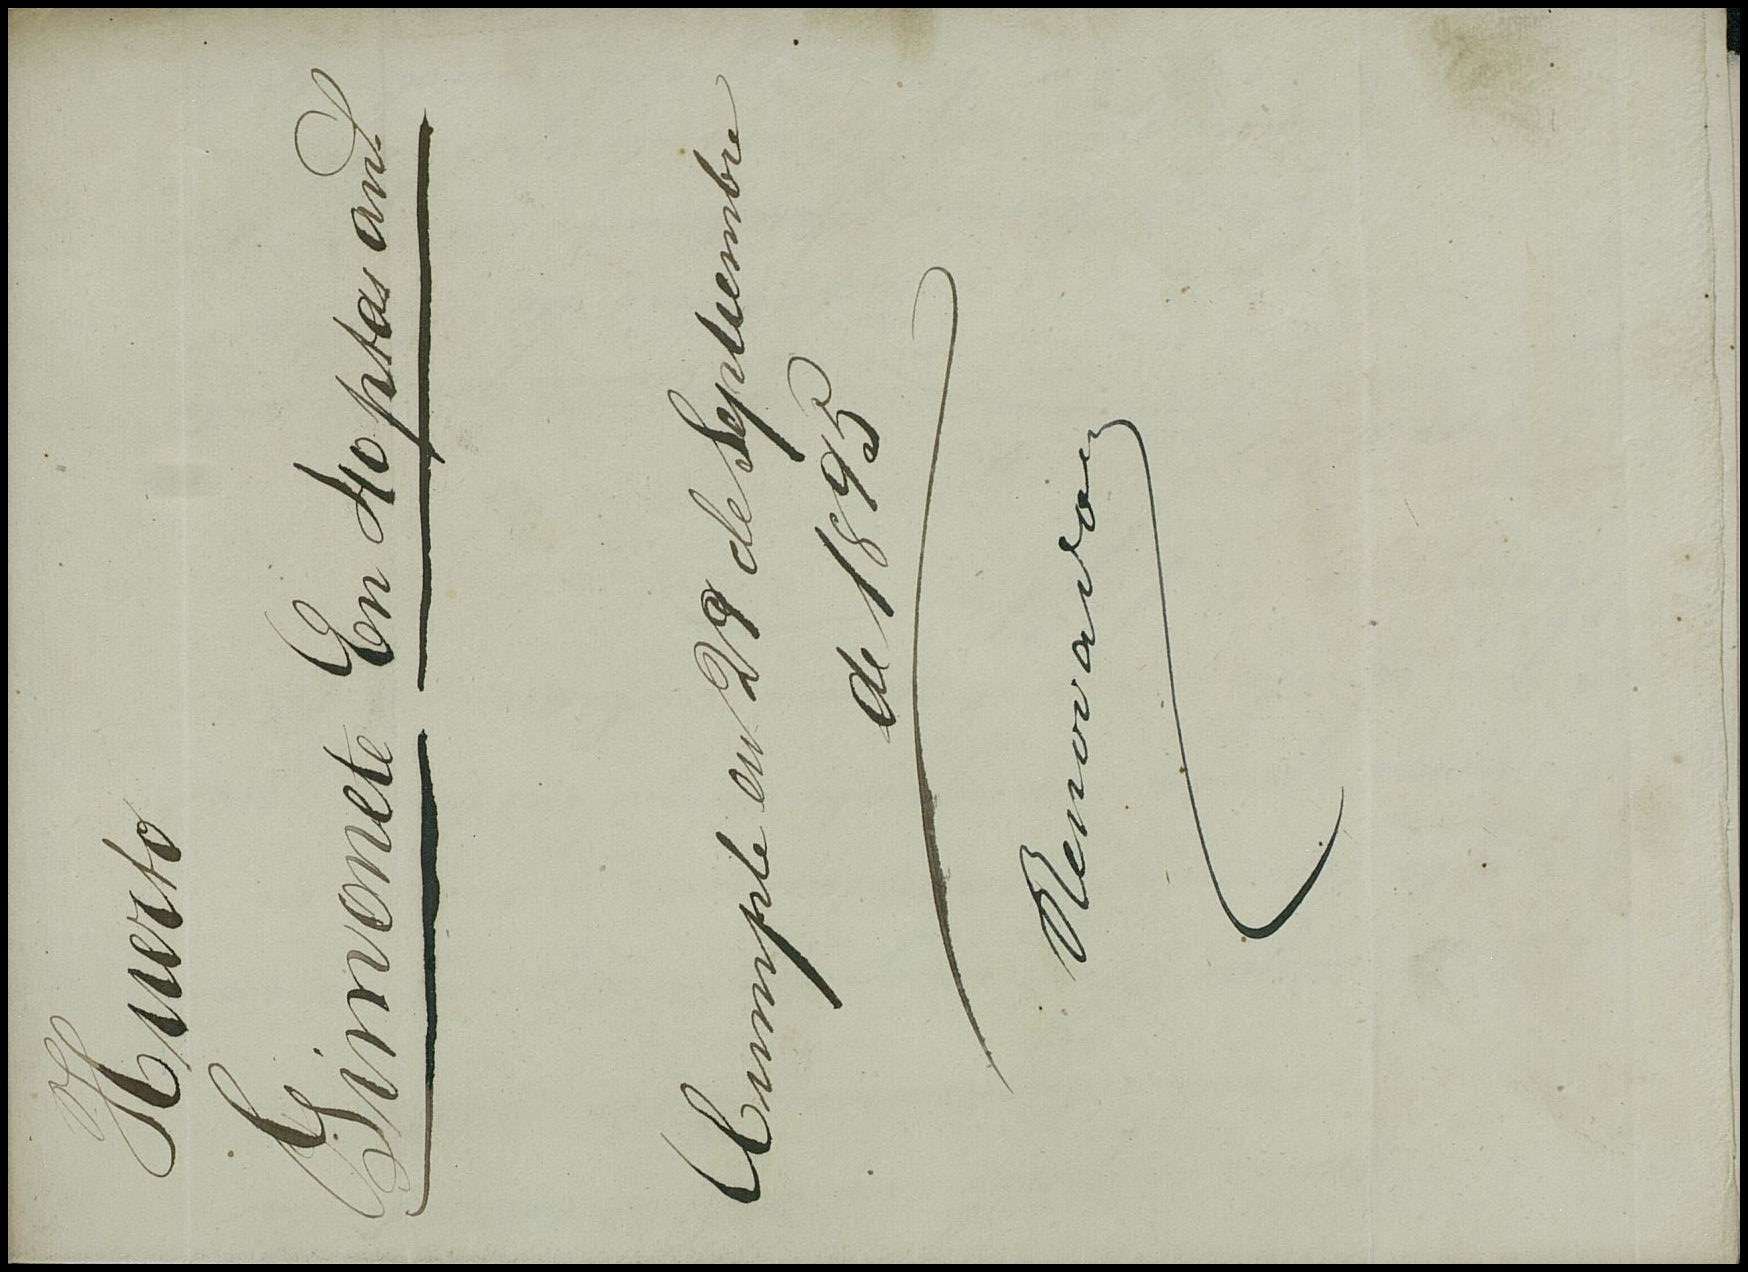 Huerto
Gimonete En 40 ptas an.s
Cumple en 29 de Septiembre
de 1895
Renovado